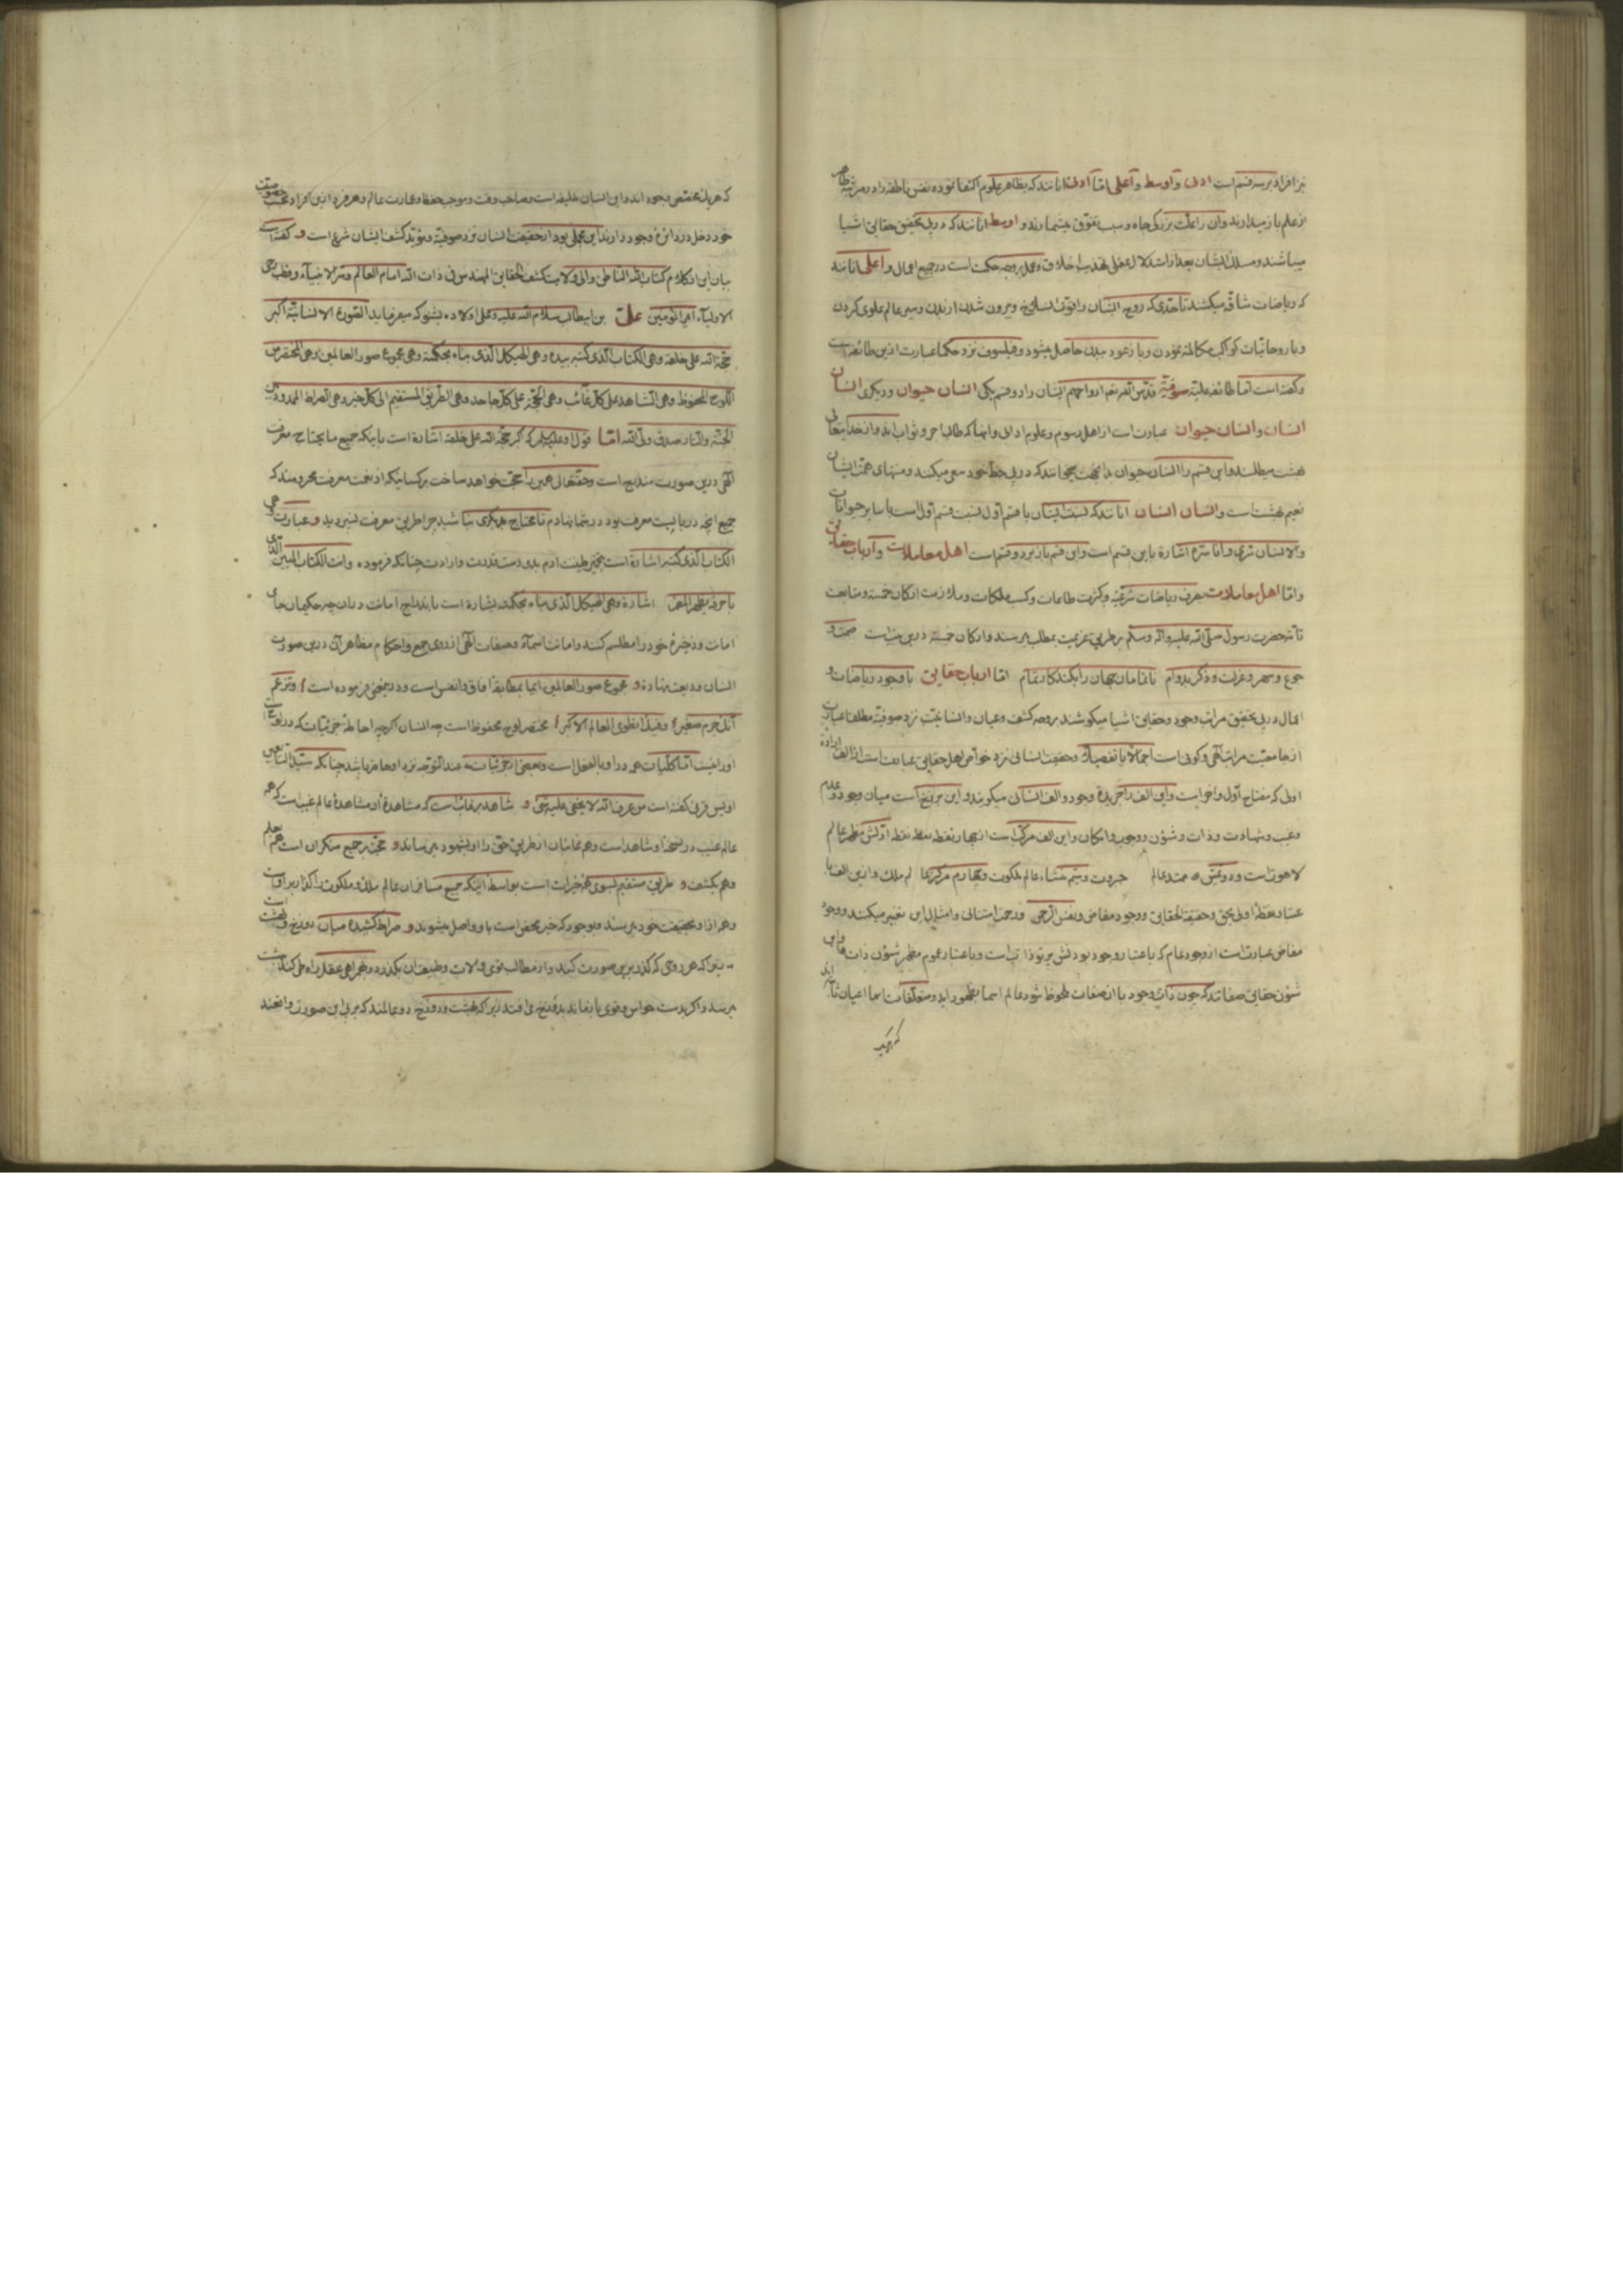 نیز افراد بر سه قسم است ادنی و اوسط و اعلی اما ادنی انانند که بظاهر علوم اکتفا نموده نفس ناطقه را در مرتبه ظاهر
از علم باز میدارند و آن را علت بزرکی جاه و سبب تفوق میشمارند و اوسط انانند که در پی تحقیق حقایق اشیا
میباشند و مسلک ایشان بعد از استدلال عقلی تهذیب اخلاق و عمل بر وجه حکمت است در جمیع اعمال و اعلی انانند
که ریاضات شاقه میکشند تا حدی که روح ایشان را قوت انسلاخ و بیرون شدن از بدن و سیر عالم علوی کردن
و با روحانیات کواکب مکالمه نمودن و باز عود ببدن حاصل میشود و فیلسوف نزد حکما عبارت ازین طائفه است
و کفته است اما طائفه علیه صوفیه قدس الله تعالی ارواحهم ایشان را دو قسم یکی انسان حیوان و دیکری انسان
انسان و انسان حیوان عبارت است از اهل رسوم و علوم ادانی و انها که طالب اجر و ثواب اند و از خدایتعالی
بهشت میطلبند و این قسم را انسان حیوان بدانجهت میخوانند که در پی حظ خود سعی میکنند و منتهای همت ایشان
نعیم بهشت است و انسان انسان انانند که نسبت ایشان با قسم اول نسبت قسم اول است با سایر حیوانات
والانسان سری وانا سره اشارة باین قسم است و این قسم باز بر دو قسم است اهل معاملات و ارباب حقایق
و اما اهل معاملات بصرف ریاضات شرعیه و کثرت طاعات و کسب ملکات و ملازمت ارکان خمسه و متابعت
تامه حضرت رسول صلی الله علیه واله وسلم بر طریق عزیمت بمطلب میرسند و ارکان خمسه درین بیت است صمت و
جوع و سهر و عزلت و ذکر بدوام ناتمامان جهان را بکند کار تمام اما ارباب حقایق با وجود ریاضات و
اعمال در پی تحقیق مراتب وجود و حقایق اشیا میکوشند بر وجه کشف و عیان و انسانیت نزد صوفیه مطلقا عبارت
از جامعیت مراتب الهی و کونی است اجمالا یا تفصیلا و حقیقت انسانی نزد خواص اهل حقایق عبارت است از الف اراده
اولی که مفتاح اول و اخر است و این الف را جریده وجود و الف انسانی میکویند و این برزخ است میان وجود و عدم
و غیب و شهادت و ذات و شؤن و وجوب و امکان و این الف مرکب است از چهار نقطه نقطه اولش مظهر عالم
لاهوت است و دویمین ممد عالم جبروت و سیم منشاء عالم ملکوت و چهارم مرکز عالم ملک و ازین الف با
عتبار نقطه اولی بحق و حقیقة الحقایق و وجود مفاض و نفس الرحمن و رحمت امتنانی و امثال این تعبیر میکنند و وجود
مفاض عبارت است از وجود عام که باعتبار وجود بودنش پرتو ذات است و باعتبار عموم مظهر شؤن ذات و این
شؤن حقایق صفاتند که چون ذات وجود با ان صفات ملحوظ شود عالم اسما بظهور اید و متعلقات اسما اعیان ثابته اند
که هر یک
که هر یک مقتضی وجود اند و این انسان خلیفه است و صاحب وقت و موجب حفظ و عمارت عالم و هر فرد ازین افراد بحسب خصوصیت
خود دخل در دائره وجود دارند این مجملی بود از حقیقت انسان نزد صوفیه و مؤید کشف ایشان شرع است و کفته است
بیان این از کلام کتاب الله الناطق والی ولایت کشف الحقایق المهندس فی ذات الله امام العالم و سر الانبیاء و قطب رحی
الاولیاء امیر المؤمنین علی بن ابیطالب سلام الله علیه و علی اولاده بشنو که میفرماید الصورة الانسانیة اکبر
حجة الله علی خلقه وهی الکتاب الذی کتبه بیده وهی الهیکل الذی بناه بحکمته وهی مجموع صور العالمین وهی المختصر من
اللوح المحفوظ وهی الشاهد علی کل غائب وهی الحجة علی کل جاحد وهی الطریق المستقیم الی کل خیر وهی الصراط الممدود بین
الجنة والنار صدق ولی الله اما قول او علیه السلم که اکبر حجة الله علی خلقه اشارة است باینکه جمیع ما یحتاج معرفت
الهی درین صورت مندرج است و حقتعالی همین را حجت خواهد ساخت بر کسانیکه از نعمت معرفت محرومند که
جمیع انچه دربایست معرفت بود در شما نهادم تا محتاج بدیکری نباشید چرا طریق معرفت نسپردید و عبارت هی
الکتاب الذی کتبه اشارة است بتخمیر طینت ادم بدو دست قدرت و ارادت چنانکه فرموده وانت الکتاب المبین الذی
باحرفه یظهر المضمر اشارة وهی الهیکل الذی بناه بحکمته بشارة است باندراج امانت در ان چه حکیمان جای
امانت و ذخیره خود را مطلسم کنند و امانت اسماء و صفات الهی از روی جمع و احکام مظاهر آن درین صورت
انسان ودیعت نهاده و مجموع صور العالمین ایما بمطابقه افاق و انفس است و در جیفی فرموده است وتزعم
انک جرم صغیر وفیک انطوی العالم الاکبر مختصر لوح محفوظ است چه انسان اکرچه احاطه جزئیات که در لوح است
او را نیست اما کلیات همه در او بالفعل است و بعضی از جزئیات عند التوجه نزد او حاضر باشد چنانکه سید التابعین
اویس قرنی کفته است من عرف الله لا یخفی علیه شئ و شاهد بر غائب است که مشاهده او مشاهده عالم غیب است که همه
عالم غیب در نسخه او شاهد است و هم غائبان از طریق حق را او بشهود میرساند و حجت بر جمیع منکران است هم بعلم
و هم بکشف و طریق مستقیم بسوی همه خیرات است بواسطه اینکه جمیع مسافران عالم ملک و ملکوت را کذار بر او است
و هم از او بحقیقت خود میرسند و بوجود که خیر محض است باو واصل میشوند و صراط کشیده میان دوزخ و بهشت است
بدین معنی که هر روحی که کذر برین صورت کند و از مطالب قوی و الات و طبیعت ان بکذرد و بهمراهی عقل راه طی کند ببهشت
میرسد و اکر بدست حواس و قوی باز ماند بدوزخ می افتد زیرا که بهشت و دوزخ دو عالمند که بر پی این صورت واقعند